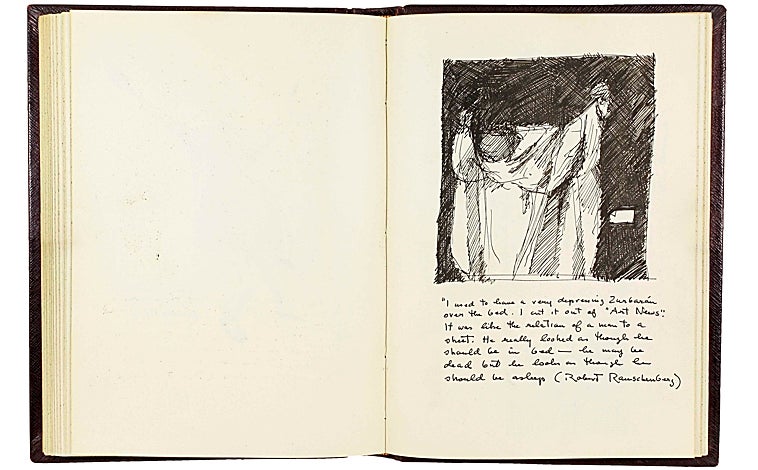 "I used to have a very depressing Zurbarán
over the bed. I cut it out of "Art News".
It was like the relation of a man to a
sheet. He really looked as though he
should be in bed — he may be
dead but he looks as though he
should be asleep (Robert Rauschenberg)